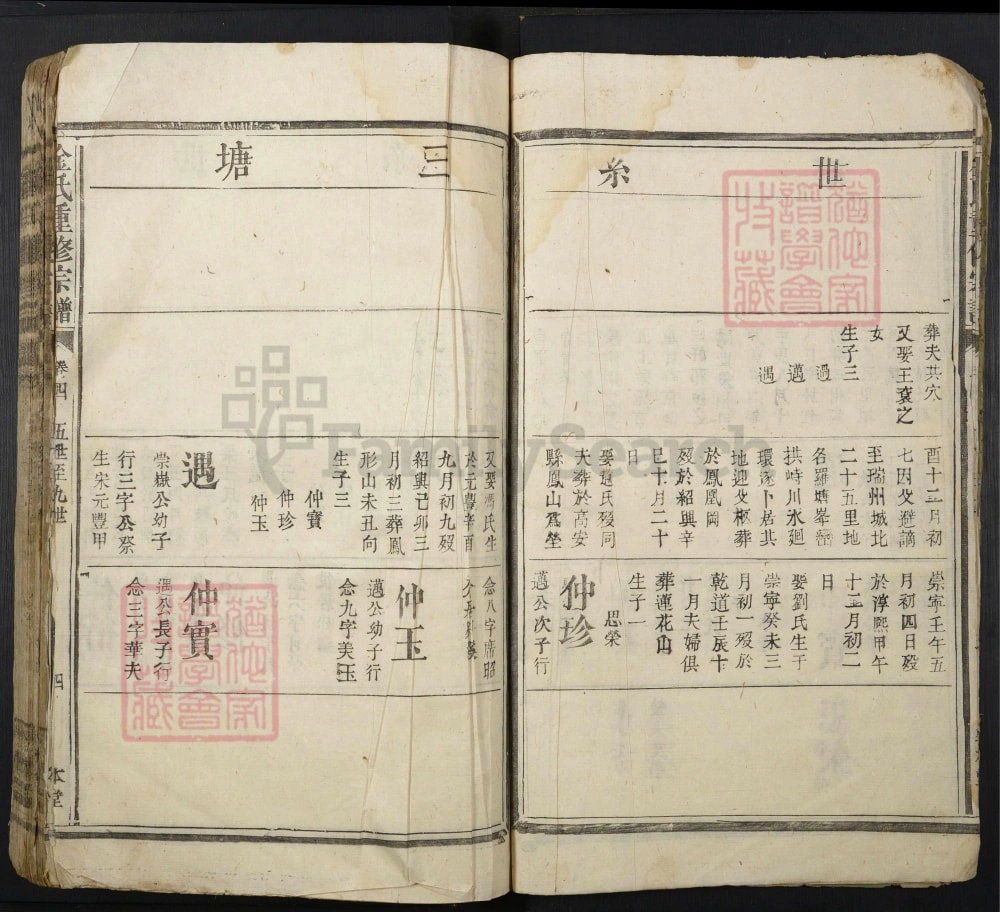 世系
葬夫共穴
又娶王袞之
女
生子三
過
邁
遇
酉十二月初
七因父避謫
至瑞州城北
二十五里地
名羅塘峯巒
拱峙川水廻
環遂卜居其
地迎父柩葬
於鳳凰岡
歿於紹興辛
巳十月二十
日
娶范氏歿同
夫葬於高安
縣鳳山爲塋
崇寧壬午五
月初四日歿
於淳熙甲午
十二月初二
日
娶劉氏生于
崇寧癸未三
月初一歿於
乾道壬辰十
一月夫婦俱
葬蓮花山
生子一
思榮
仲珍
邁公次子行
三塘
又娶馮氏生
於元豐辛酉
九月初九歿
紹興己卯三
月初三葬鳳
形山未丑向
生子三
仲寶
仲珍
仲玉
遇
崇嶽公幼子
行三字公察
生宋元豐甲
念八字席昭
仲玉
邁公幼子行
念九字美玉
仲實
遇公長子行
念三字華夫
金氏重修宗譜
卷四
五世至九世
四
本堂
猶他家譜學會特藏
猶他家譜學會特藏
FamilySearch